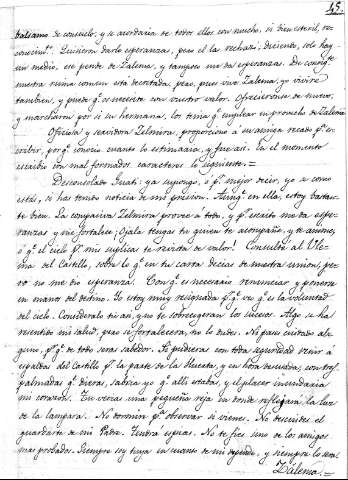 45.
balsamo de consuelo, y se acordaria de todos ellos con mucho, si bien esteril, re-
conocim.to Quisieron darle esperanzas, pero el la rechazó, diciendo, solo hay
un medio, ese pende de Zalema, y tampoco me da esperanza. De consig.te
nuestra ruina comun está decretada; pero, pues viva Zalema, yo viviré
tambien, y puede q.e necesite con vuestro valor. Ofrecieronse de nuevo,
y marcharon por si su hermana, los tenia q.e emplear en provecho de Zalema
Oficiosa y servidora Zelmira, proporcionó á su amiga recado p.a es-
cribir, por q.e conocio cuanto lo estimaria, y fue asi. En el momento
escribio con mal formados caracteres lo siguiente.=
Desconsolado Guati: ya supongo, ó p.r mejor decir, yo se como
estás, si has tenido noticia de mi prision. Aunq.e en ella, estoy bastan-
te bien. La compasiva Zelmira provee a todo, y p.r escrito me da espe-
ranzas y me fortalece; Ojalá tengas tu quien te acompañe, y te anime,
ó q.e el cielo p.r mi suplica te revista de valor! Consulté al Ule-
ma del Castillo, sobre lo q.e en tu carta decias de nuestra union, pe-
ro no me dio esperanza. Con q.e es necesario renunciar, y ponerse
en manos del destino. Yo estoy muy resignada p.r q.e veo q.e es la voluntad
del cielo. Consideralo tu asi, y no te sobrecogeran los sucesos. Algo se ha
resentido mi salud, pero se fortalecerá, no lo dudes. No pases cuidado al-
guno, p.r q.e de todo seras sabedor. Si pudieras con toda seguridad venir á
espaldas del Castillo p.r la parte de la Huerta, y en hora desusada, con tres
palmadas q.e dieras, sabria yo q.e alli estabas, y el placer inundaria
mi corazon. Tu verias una pequeña reja en donde reflejará la luz
de la lampara. No dormire p.r observar si vienes. No descuides el
guardarte de mi Padre. Tendrá espias. No te fies sino de los amigos
mas probados. Siempre soy tuya en cuanto de mi dependa, y siempre lo será
Zalema.=